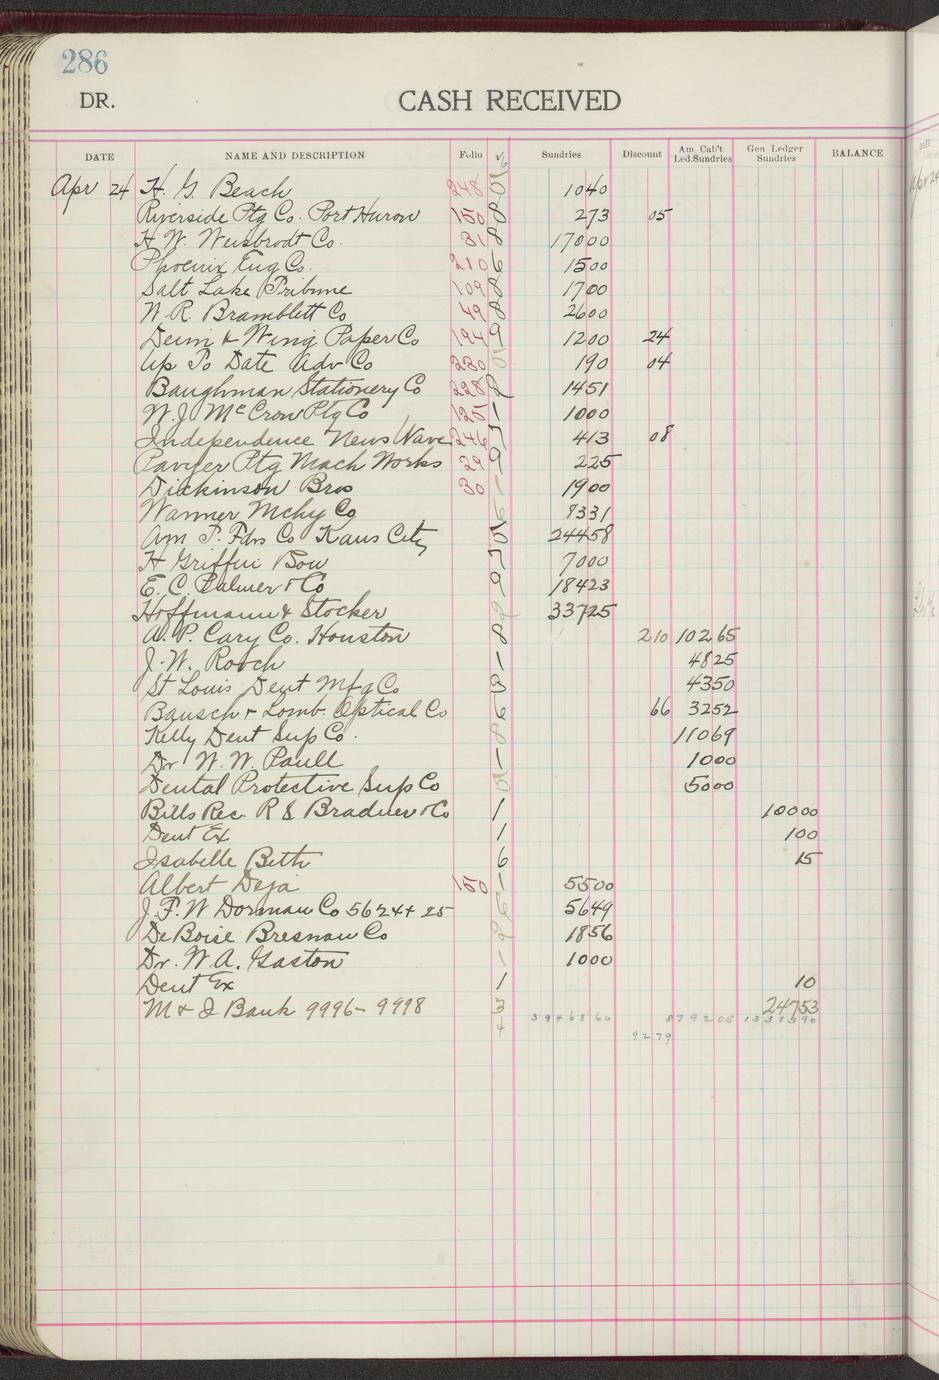 286
DR. CASH RECEIVED
DATE NAME AND DESCRIPTION Folio √ Sundries Discount Am Cab't Led.Sundries Gen Ledger Sundries BALANCE
Apr 24 H. G. Beach 248 5 1040
Riverside Ptg Co. Port Huron 150 8 273 05
H. W. Weisbrodt Co. 31 8 17000
Phoenix Eng Co. 210 6 1500
Salt Lake Tribune 109 8 1700
W. R. Bramblett Co 49 8 2600
Deim & Wing Paper Co 194 9 1200 24
Up To Date Adv Co 230 5 190 04
Baughman Stationery Co 228 2 1451
W. J. McCrow Ptg Co 125 1 1000
Independence News Wave 246 5 413 08
Ptg Mach Works 29 9 225
Dickinson Bros 30 1 1900
Wanner Mchy Co 6 8331
Am T. Fdrs Co Kans City 5 24458
H Griffin & Son 5 7000
E. C. Palmer & Co 9 18423
Hoffmann & Stocker 9 33725
A. P. Cary Co. Houston 8 210 10265
J. W. Rooch 1 4825
St Louis Dent Mfg Co 3 4350
Bausch & Lomb Optical Co 6 66 3252
Kelly Dent Sup Co. 8 11069
Dr W. W. Paull 1 1000
Dental Protective Sup Co 5 5000
Bills Rec. R S Bradner & Co 1 10000
Dent Ex 1 100
Isabelle Beth 6 15
Albert Deja 150 1 5500
J. F. W Dorman Co 5624 + 25 6 5649
DeBoise Bresnan Co 9 1856
Dr. W. A. Gaston 1 1000
Dent Ex 1 10
M & I Bank 9996 - 9998 3 24753
4 3946866 879205 1338590
9279